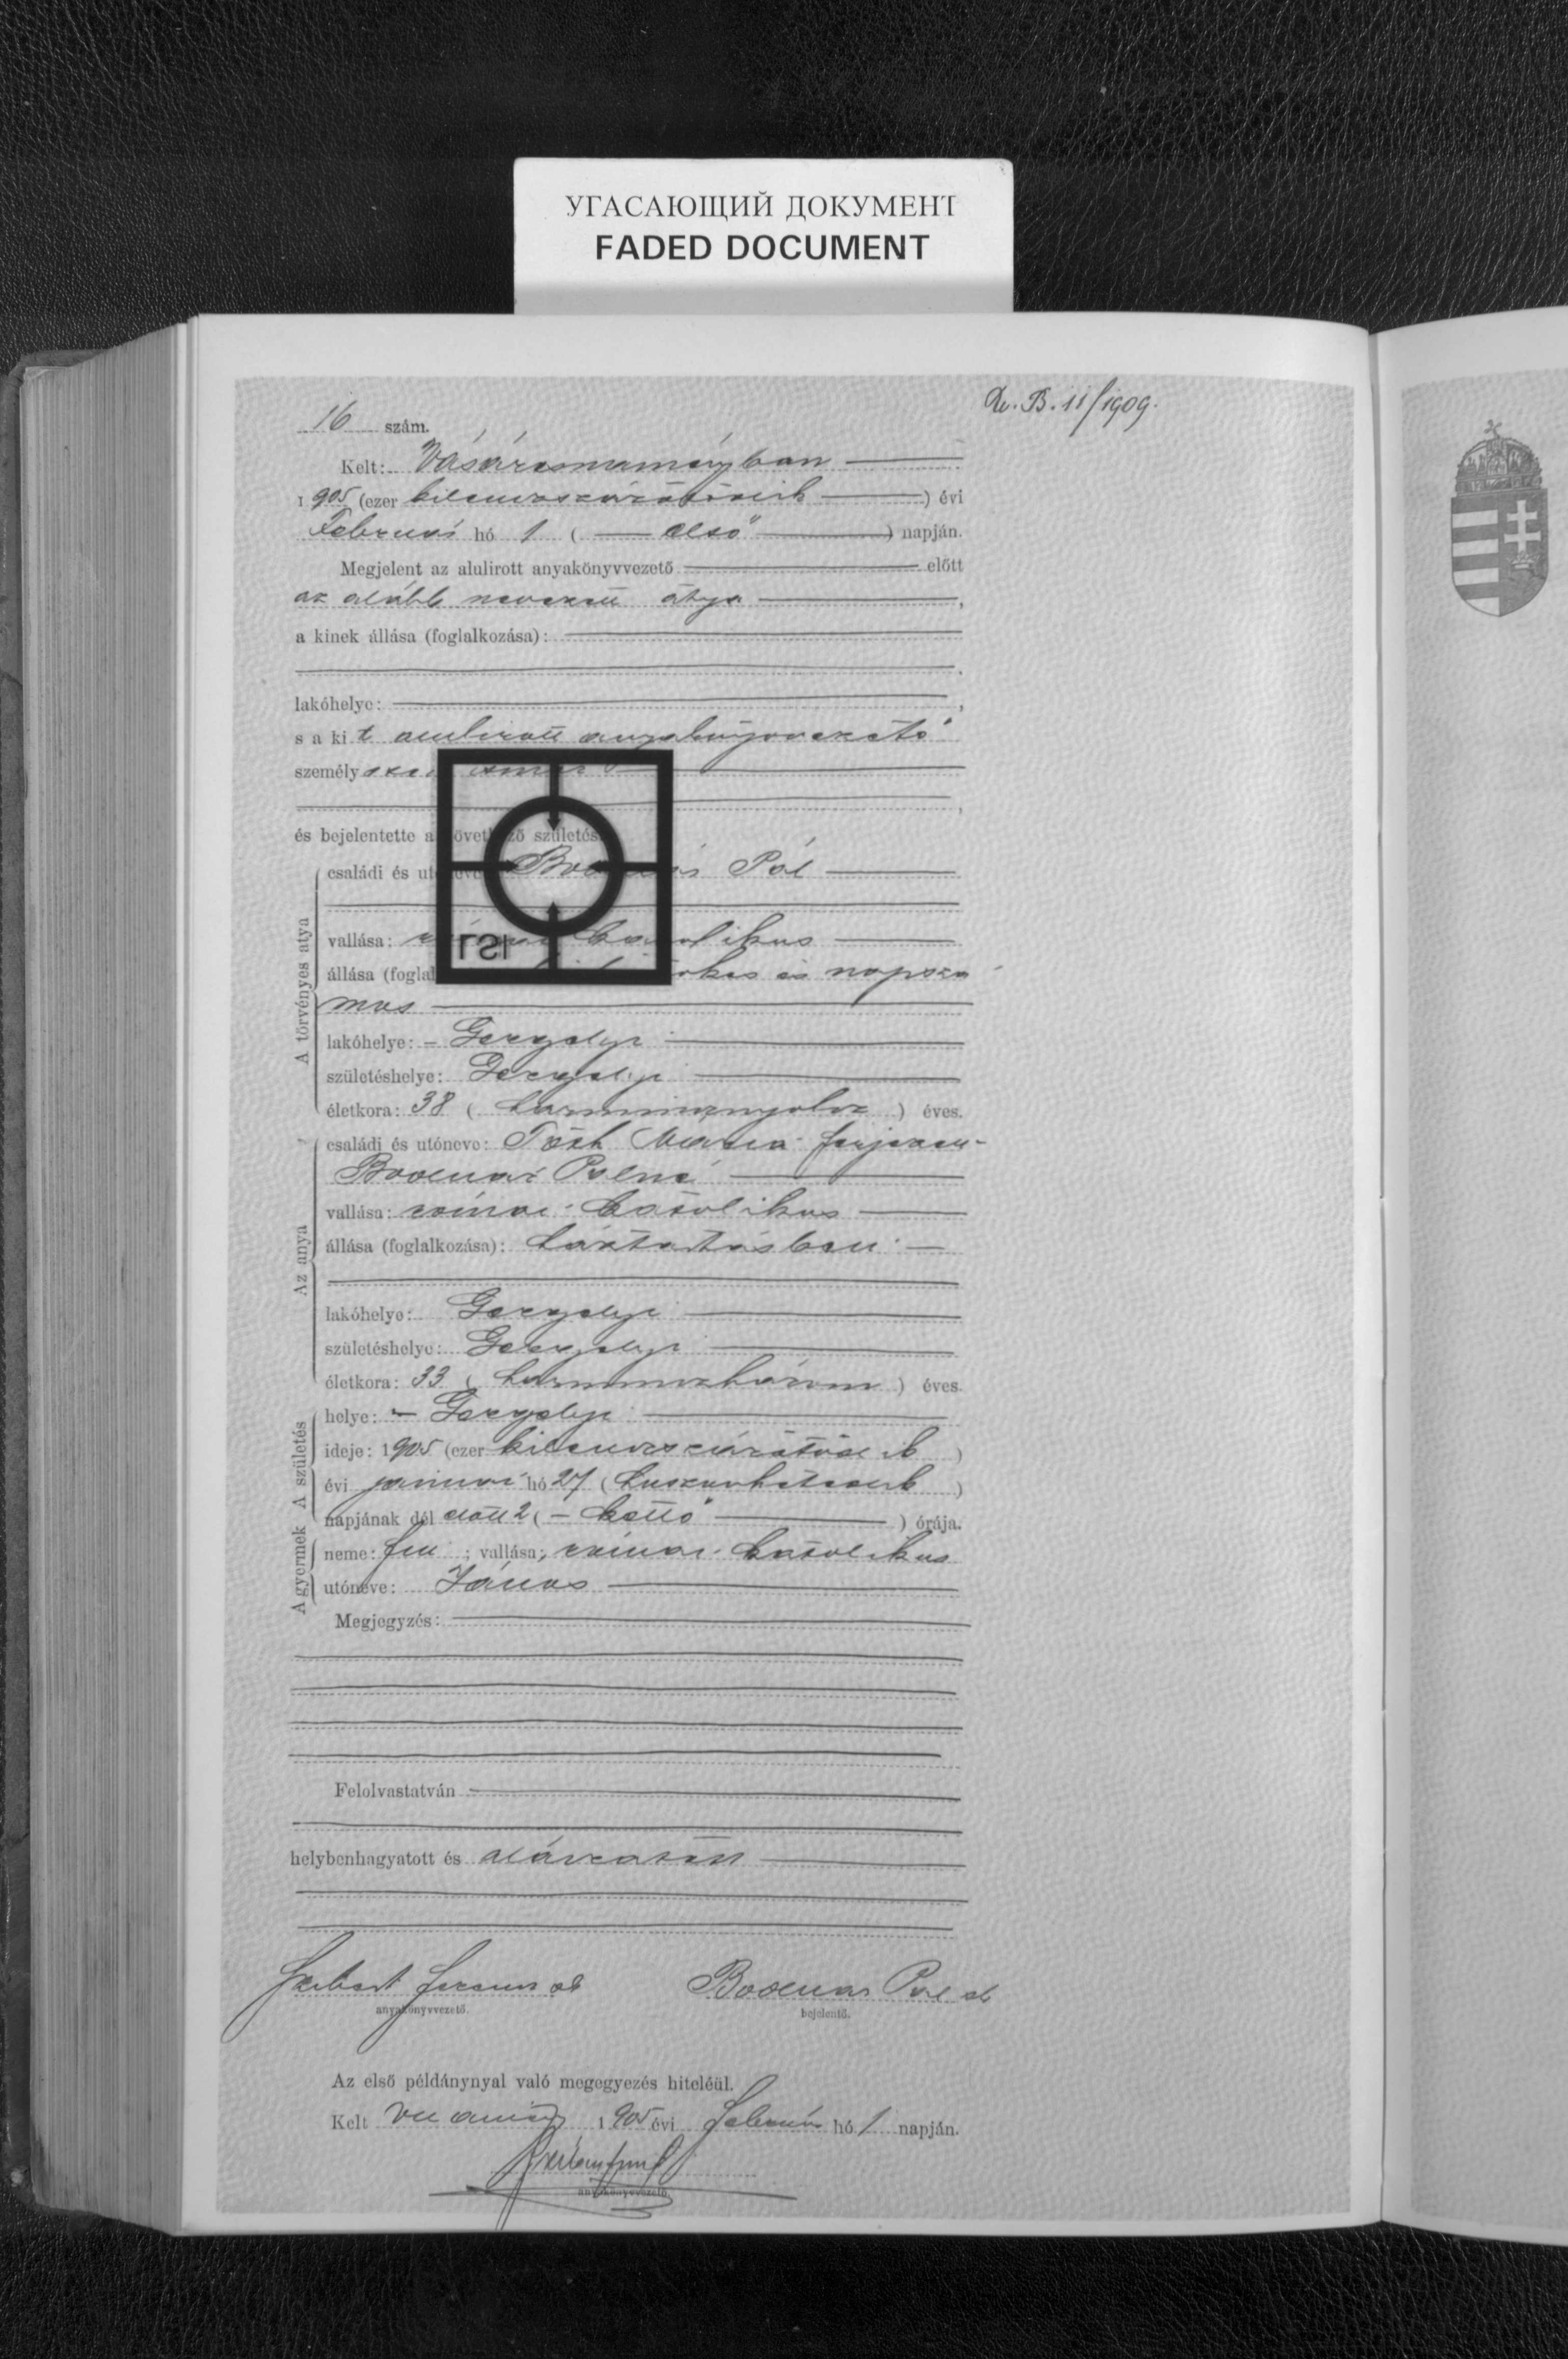 УГАСАЮЩИЙ ДОКУМЕНТ
FADED DOCUMENT
B. 11/1909.
16 szám.
Kelt: Vásárosnaményban
1905 (ezer kilenczszázötödik) évi
Február hó 1 (első) napján.
Megjelent az alulirott anyakönyvvezető előtt
az alább nevezett atya,
a kinek állása (foglalkozása):
lakóhelye:
s a kit alulirott anyakönyvvezető
személy
és bejelentette a következő születést
A törvényes atya
családi és utóneve: Pál
vallása: római katolikus
állása (foglal és napszá
mos
lakóhelye: Gergelyi
születéshelye: Gergelyi
életkora: 38 (harmincznyolcz) éves.
Az anya
családi és utóneve: Tóth Mária férjezett
Bodnár Pálné
vallása: római katolikus
állása (foglalkozása): háztartásbeli
lakóhelye: Gergelyi
születéshelye: Gergelyi
életkora: 33 (harminczhárom) éves.
A születés
helye: Gergelyi
ideje: 1905 (ezer kilenczszázötödik)
évi január hó 27 (huszonhetedik)
napjának dél előtt 2 (kettő) órája.
A gyermek
neme: fiu; vallása: római katolikus
utóneve: János
Megjegyzés:
Felolvastatván
helybenhagyatott és aláiratott
Ferencz sk
anyakönyvvezető.
Bodnár Pál sk
bejelentő.
Az első példánynyal való megegyezés hiteléül.
Kelt 1905 évi február hó 1 napján.
anyakönyvvezető.